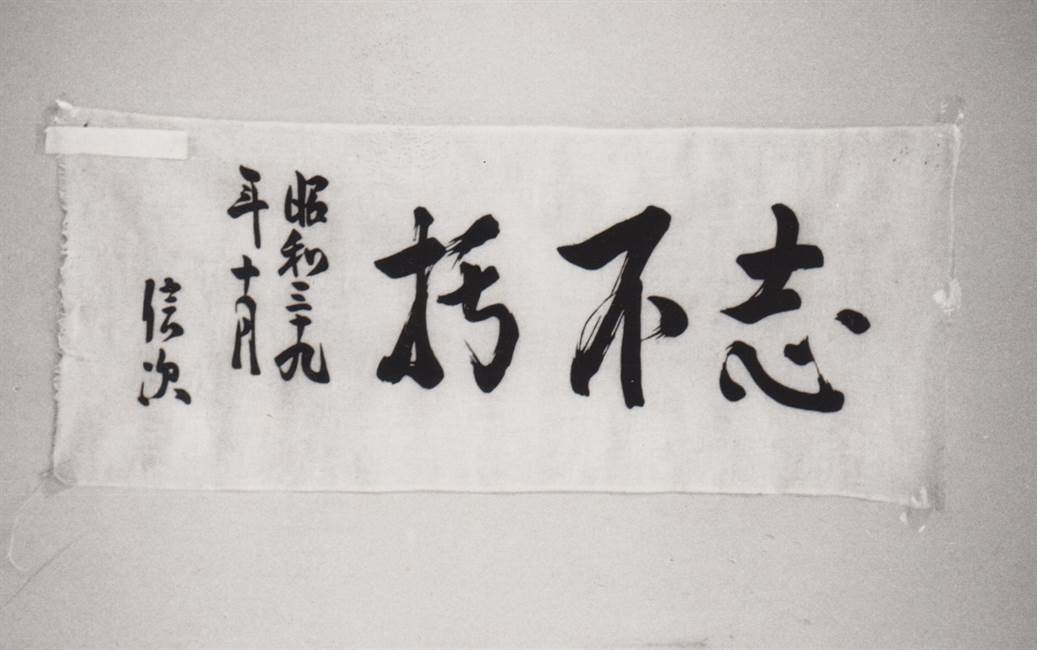 志不朽
昭和三十九
年十月
信次